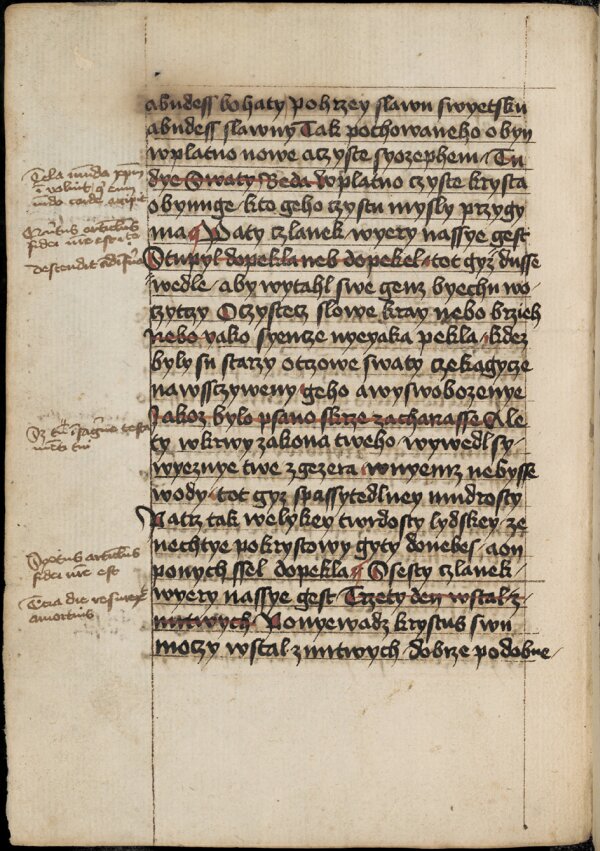 abudess bohaty pohrzey slawu swyetsku
abudess slawny Tak pochowaneho obyn
wplatno nowe aczyste syozephem Tu
dye Swaty Beda wplatno czyste krysta
obynuge kto geho czystu mysly przygy
ma Paty czlanek wyery nassye gest
Stupyl dopekla neb dopekel tot gyz dusse
wedle aby wytahl swe genz byechu wo
czytczy Oczystecz slowe kray nebo brzieh
nebo yako syencze nyeyaka pekla kdez
byly su starzy otczowe swaty czekagycze
nawssczyweny geho awyswobozenye
Jakoz bylo psano skrze zachariasse Ale
ty wkrwy zakona tweho wywedl sy
wyeznye twe zgezera wnyemz nebysse
wody tot gyz spassytedlney mudrosty
Patrz tak welykey twrdosty lydskey ze
nechtye pokrystowy gyty donebes aon
ponych ssel dopekla Ssesty czlanek
wyery nassye gest Trzety den wstal z
mrtwych Ponyewadz krystus swu
moczy wstal z mrtwych dobrze podobne
Quintus articulus
fidei
descendit ad
Sextus articulus
fidei est
Tercia die
a mortuis